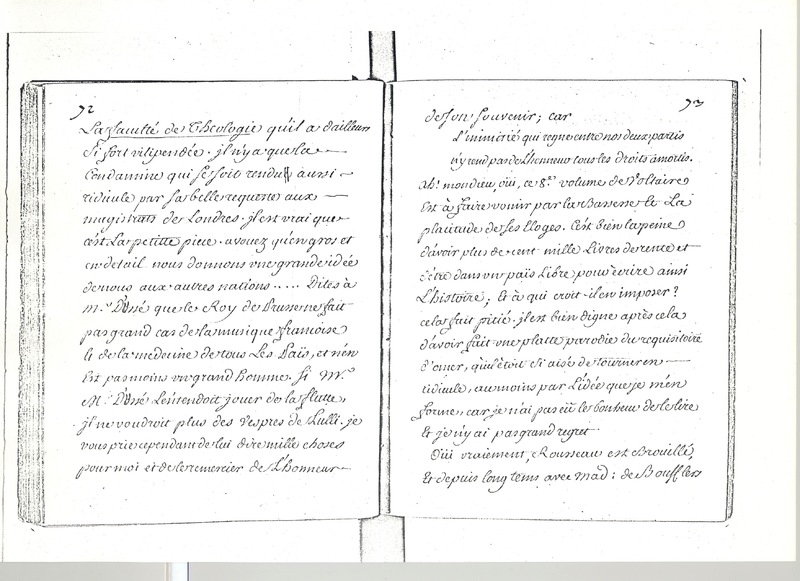 72
La faculté de Theologie qu'il a d'ailleurs
si fort vilipendée. jl n'y a que la
Condamine qui se soit rendu aussi
ridicule par sa belle requeste aux
magistrats de Londres. jl est vrai que
c'est La petitte piece. avouez qu'en gros et
en detail nous donnons une grande idée
de nous aux autres nations ..... Dites à
M.r que le Roy de Prusse ne fait
pas grand cas de la musique francoise
et de la medecine de tous Les Païs, et n'en
Est pas moins un grand homme. Si
M.r L'entendoit jouer de la flutte,
jl ne voudroit plus des Vespres de Lulli. je
vous prie cependant de lui dire mille choses
pour moi et de le remercier de L'honneur
73
de son souvenir; car
L'inimitié qui regne entre nos deux partis
n'y rend pas de L'honneur tous les droits amortis.
Ah! mon dieu, oui, ce 8.e volume de Voltaire
Est à faire vomir par la bassesse et La
platitude de ses Eloges. C'est bien la peine
d'avoir plus de cent mille Livres de rente et
d'être dans un païs Libre pour écrire ainsi
L'histoire; Et à qui croit-il en imposer?
cela fait pitié. jl est bien digne après cela
d'avoir fait une platte parodie du requisitoire
d'omer, qu'il étoit si aisé de tourner en
ridicule, au moins par L'idée que je m'en
forme, car je n'ai pas eü le bonheur de le lire
Et je n'y ai pas grand regret
Oui vraiement, Rousseau est Brouillé,
Et depuis long tems avec Mad: de Boufflers